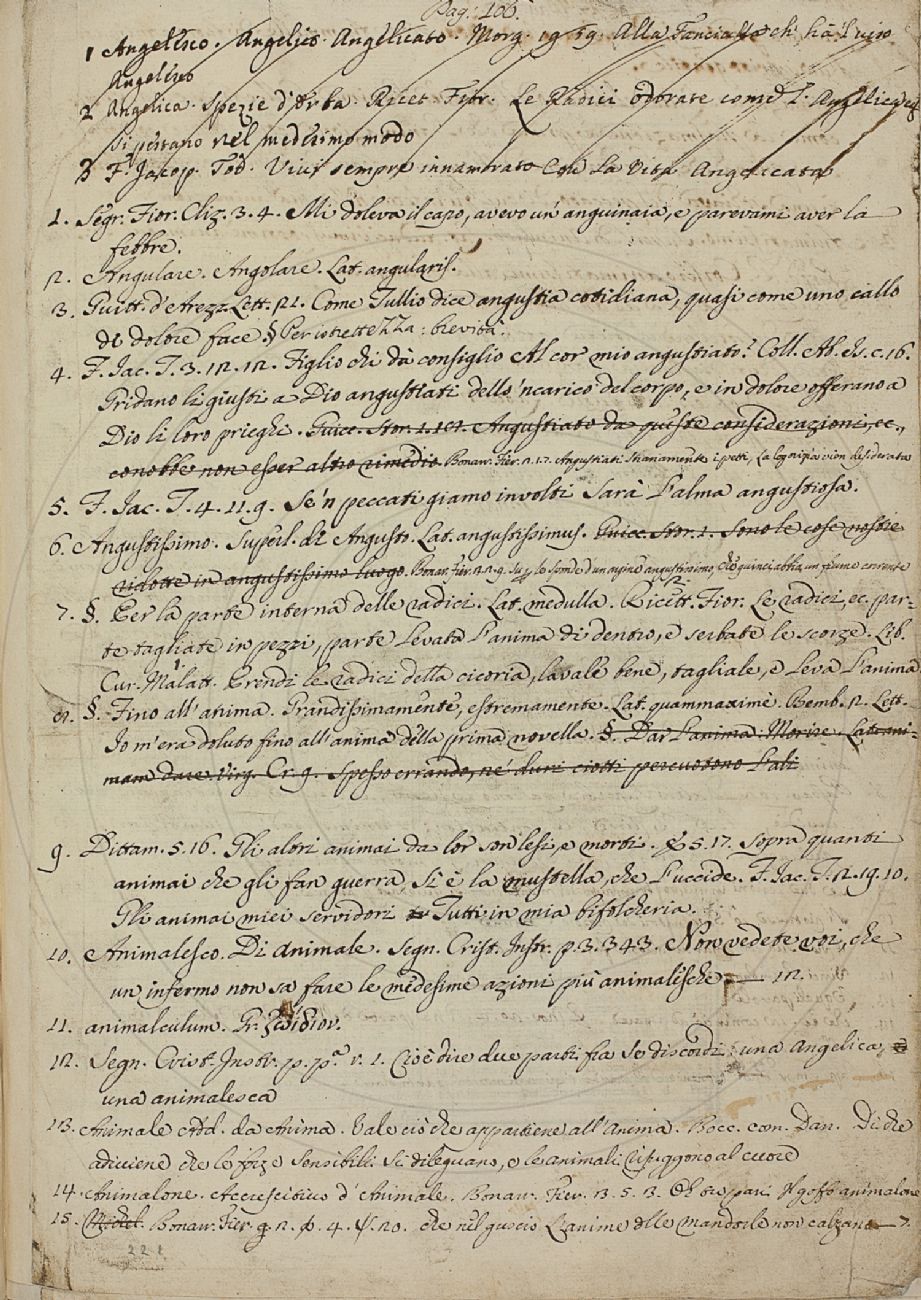 Pag. 106.
1 Angelesco. Angelico. Angelicato. Morg. 19. 59. Alla Fanciulla ch' hà 'l viso
Angelico
2 Angelica. Spezie d'Erba. Ricet. Fior. Le Radici odorate come l'Angelica
si pestano nel medesimo modo
3 F. Jacop. Tod. Vivi sempre innamorato Con la Vita Angelicata
1. Segr. Fior. Cliz. 3. 4. Mi doleva il capo, avevo un'anguinaia, e parevami aver la
febbre.
2. Angulare. Angolare. Lat. angularis.
3. Guitt. d'Arezz. Lett. 21. Come Tullio dice angustia cotidiana, quasi come uno callo
di dolore face. § Per istrettezza: brevità.
4. F. Jac. T. 3. 12. 12. Figlio chi dà consiglio Al cor mio angustiato? Coll. Ab. Is. c. 16.
Gridano li giusti a Dio angustiati dello 'ncarico del corpo, e in dolore offerano a
Dio li loro prieghi. Guicc. Stor. 1. 101. Angustiato da queste considerazioni, ec.,
conobbe non esser altro rimedio. Bonar. Fier. 2. 1. 7. Angustiati stranamente i petti, La cognizion desiderata
5. F. Jac. T. 4. 11. 9. Se 'n peccati giamo involti Sarà l'alma angustiosa.
6. Angustissimo. Superl. di Angusto. Lat. angustissimus. Guicc. Stor. 1. Sono le cose nostre
ridotte in angustissimo luogo. Bonar. Fier. 2. 2. 9. Su per le sponde d'un argine angustissimo, che quinci abbia un fiume corrente
7. §. Per la parte interna delle radici. Lat. medulla. Ricett. Fior. Le radici, ec. par-
te tagliate in pezzi, parte levata l'anima di dentro, e serbate le scorze. Lib.
Cur. Malatt. Prendi le radici della cicoria, lavale bene, tagliale, e leva l'anima
8. §. Fino all'anima. Grandissimamente, estremamente. Lat. quammaximè. Bemb. 2. Lett.
Io m'era doluto fino all'anima della prima novella. §. Dar l'anima. Morire. Lat. ani-
mam dare Virg. Cr. 9. Spesso errando, né duri ciotti percuotono l'ali
9. Dittam. 5. 16. Gli altri animai da lor son lesi, e morti. E 5. 17. Sopra quanti
animai che gli fan guerra, Si è la mustella, che l'uccide. F. Jac. T. 2. 19. 10.
Gli animai miei servidori Tutti in mia bifolcheria.
10. Animalesco. Di Animale. Segn. Crist. Instr. p. 3. 343. Non vedete voi, che
un infermo non sa fare le medesime azioni più animalesche — 12.
11. animalculum. Gr. ζωίδιον.
12. Segn. Crist. Instr. p. pª v. 1. Cioè dire due parti fra se discordi: una Angelica, e
una animalesca
13. Animale Add. da Anima. Vale ciò che appartiene all'Anima. Bocc. com. Dan. Di che
adiviene che le forze sensibili si dileguano, e le animali rifuggono al cuore
14. Animalone. Accrescitivo d'Animale. Bonar. Fier. 3. 5. 3. Oh ove pari Il goffo animalone
15. Bonar. Fier. g. 2. p. 4. ſ. 20. che nel guscio L'anime dlle mandorle non calzano — 7.
221